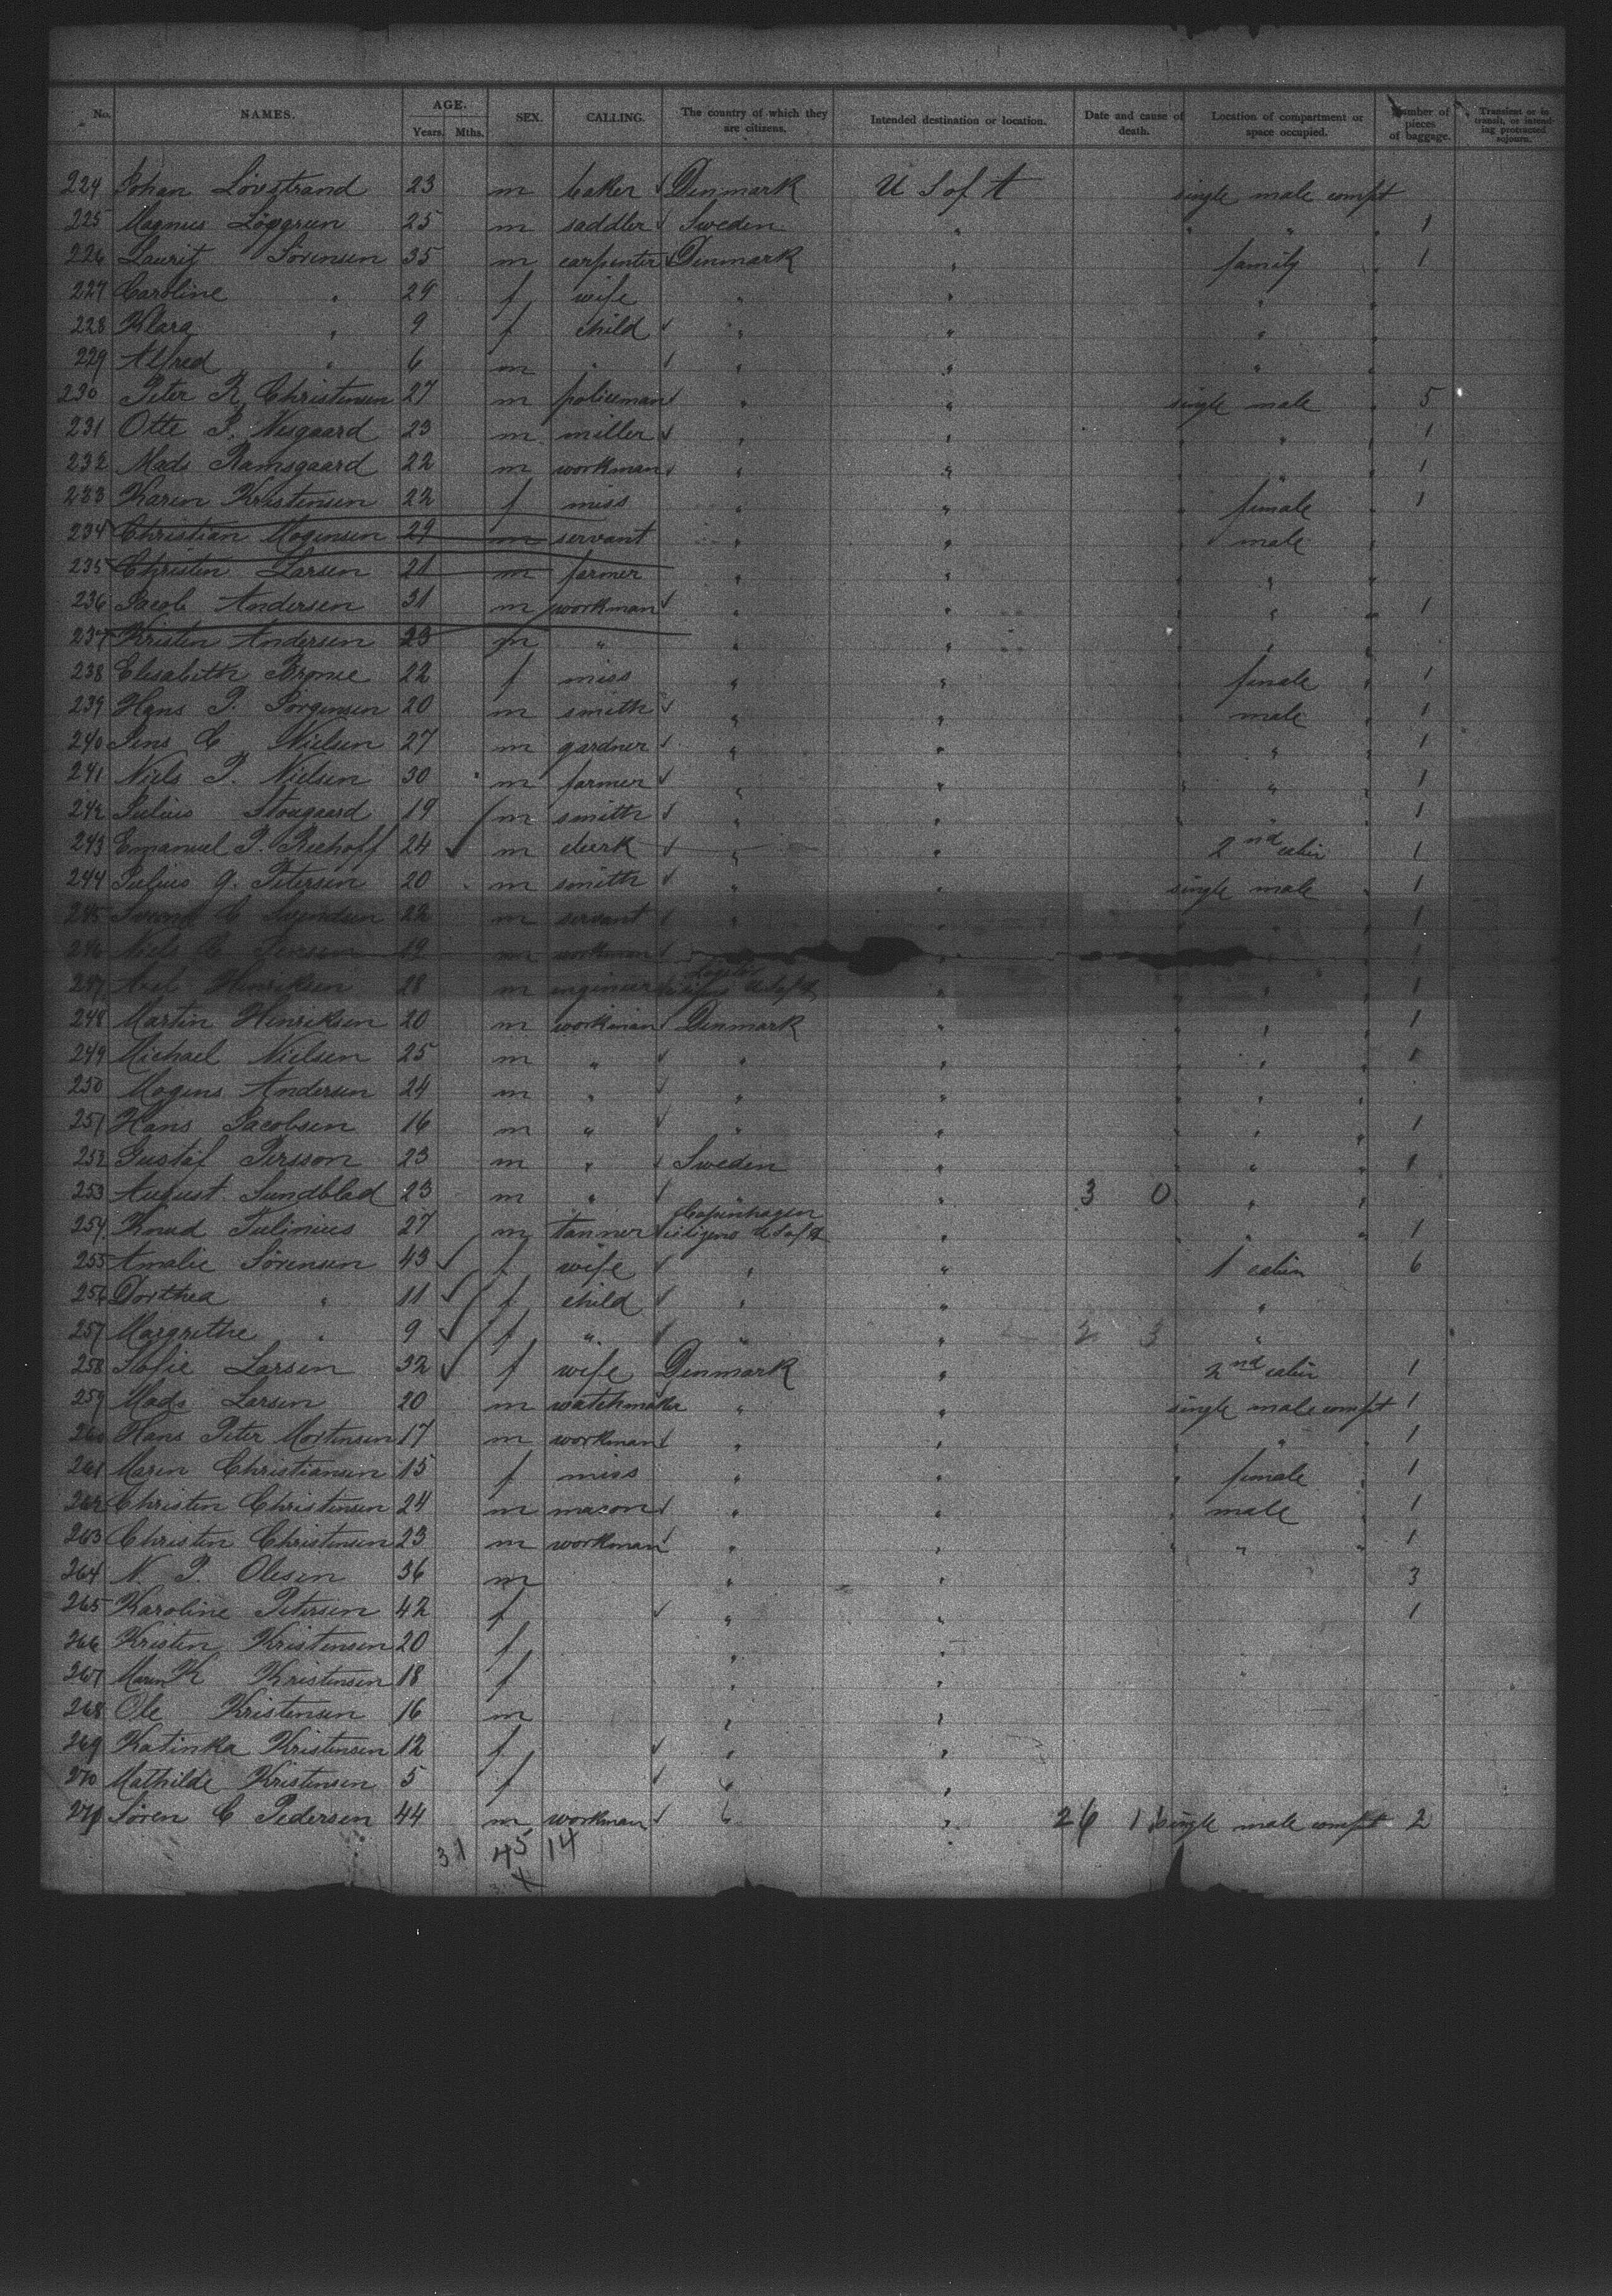 No. NAMES. AGE. Years. Mths. SEX. CALLING. The country of which they are citizens. Intended destination or location. Date and cause of death. Location of compartment or space occupied. Number of pieces of baggage. Transient or in transit, or intending protracted sojourn.
224 Johan Lövstrand 23 m baker Denmark U S of A single male compt
225 Magnus Löggren 25 m saddler Sweden " " " " 1
226 Lauritz Sörensen 35 m carpenter Denmark " family " 1
227 Caroline " 29 f wife " " " "
228 Klara " 9 f child " " " "
229 Alfred " 6 m " " " " "
230 Peter R Christensen 27 m policeman " " single male " 5
231 Otte P. Nisgaard 23 m miller " " " " " 1
232 Mads Ramsgaard 22 m workman " " " " " 1
233 Karen Kristensen 22 f miss " " " female " 1
234 Christian Mogensen 29 m servant " " " male "
235 Christen Larsen 21 m farmer " " " "
236 Jacob Andersen 31 m workman " " " " " 1
237 Kristen Andersen 23 m " " " " "
238 Elisabeth 22 f miss " " " female " 1
239 Hans P. Jörgensen 20 m smith " " " male " 1
240 Jens C Nielsen 27 m gardner " " " " " 1
241 Niels P. Nielsen 30 m farmer " " " " " 1
242 Julius Stougaard 19 m smith " " " " " 1
243 Emanuel P. 24 m clerk " " 2nd cabin 1
244 Julius G. Petersen 20 m smith " " single male " 1
245 Svend C Svendsen 22 m servant " " " 1
246 Niels C Jensen 19 m workman " 1
247 Axel Henriksen 28 m engineer citizens U S of A " " " 1
248 Martin Henriksen 20 m workman Denmark " " " " 1
249 Michael Nielsen 25 m " " " " " " 1
250 Mogens Andersen 24 m " " " " " "
251 Hans Jacobsen 16 m " " " " " " 1
252 Gustaf Persson 23 m " Sweden " " " " 1
253 August Sundblad 23 m " " " 3 0 " "
254 Knud Tulinius 27 m tanner Copenhagen citizens U S of A " " " " 1
255 Amalie Sörensen 43 f wife " " 1 cabin 6
256 Dorthea " 11 f child " " "
257 Margrethe " 9 f " " " 2 3 "
258 Sofie Larsen 32 f wife Denmark " 2nd cabin 1
259 Mads Larsen 20 m watchmaker " " single male compt 1
260 Hans Peter Mortensen 17 m workman " " " " " 1
261 Maren Christiansen 15 f miss " " " female " 1
262 Christen Christensen 24 m macon " " " male " 1
263 Christen Christensen 23 m workman " " " " " 1
264 N. P. Olesen 36 m " " 3
265 Karoline Petersen 42 f " " 1
266 Kristen Kristensen 20 f " "
267 Maren K Kristensen 18 f " "
268 Ole Kristensen 16 m " "
269 Katinka Kristensen 12 f " "
270 Mathilde Kristensen 5 f " "
271 Sören C Pedersen 44 m workman " " 26 1 single male compt 2
31 45 14